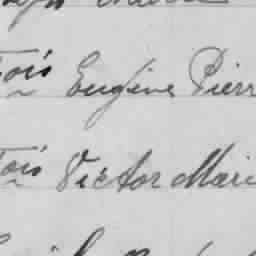 çois Eugène Pierr
çois Victor Mari